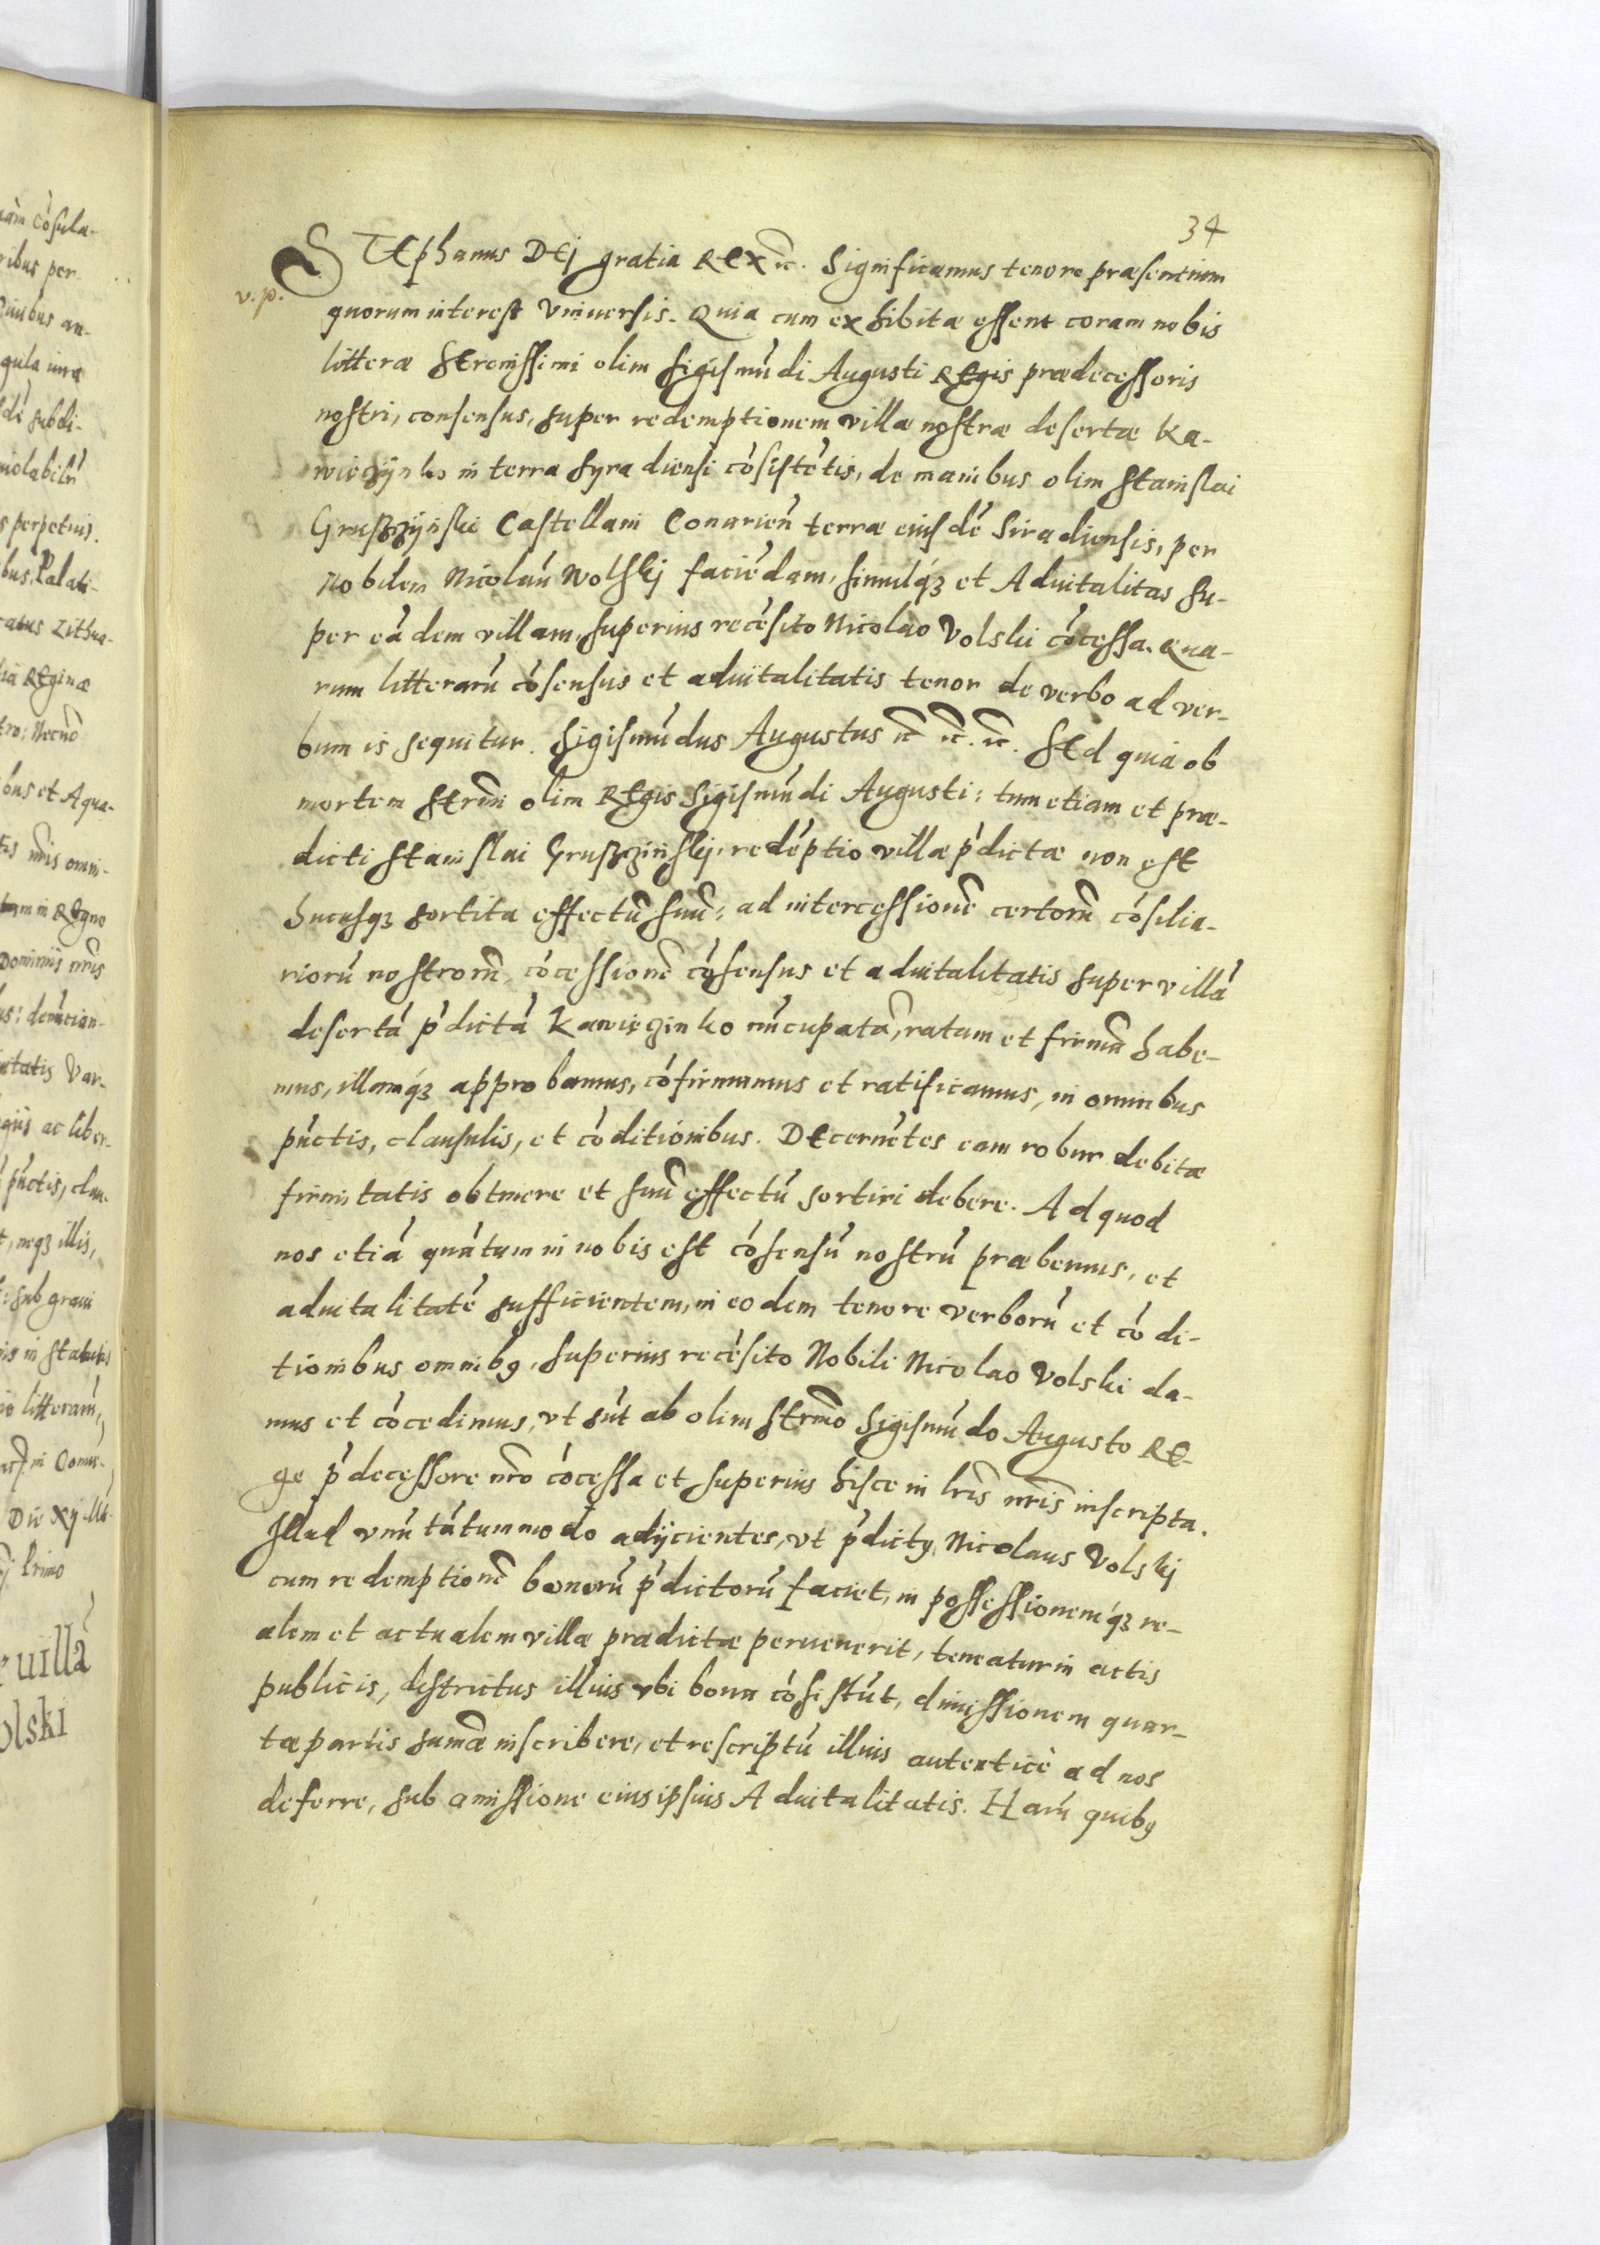 34
STEphanus DEj gratia REX etc. Significamus tenore præsentium
v. p.
quorum interest Vniuersis. Quia cum exhibitæ essent coram nobis
litteræ SErenissimi olim Sigismūdi Augusti REgis prædecessoris
nostri, consensus, super redemptionem villæ nostræ desertæ Ka-
wieczÿnko in terra Syradiensi cōsistētis, de manibus olim Stanislai
Gruszczÿnski Castellani Conarień terræ eiusdē Siradiensis, per
Nobilem Nicolaū Wolskj faciēdam, simulq́ꝫ et Aduitalitas su-
per eādem villam, superius recēsito Nicolao Volski cōcessa. Qua-
rum litterarū cōsensus et aduitalitatis tenor de verbo ad ver-
bum is sequitur. Sigismūdus Augustus etc etc. etc. SEd quia ob
mortem SErm̄i olim REgis Sigismūdi Augusti: tum etiam et præ-
dicti Stanislai Gruszczinskj, redēptio villæ p̄dictæ non est
hucusqꝫ sortita effectū suū: ad intercessionē certorū cōsilia-
riorū nostrorū, cōcessionē cōsensus et aduitalitatis super villā
desertā p̄dictā Kawieczinko nūcupatā, ratam et firmā habe-
mus, illamq́ꝫ approbamus, cōfirmamus et ratificamus, in omnibus
pūctis, clausulis, et cōditionibus. DEcernētes eam robur debitæ
firmitatis obtinere et suū effectū sortiri debere. Ad quod
nos etiā quātum in nobis est cōsensū nostrū præbemus, et
aduitalitatē sufficientem, in eodem tenore verborū et cōdi-
tionibus omnibꝯ, superius recēsito Nobili Nicolao Volski da-
mus et cōcedimus, vt sūt ab olim SErm̄o Sigismūdo Augusto RE-
ge p̄decessore nr̄o cōcessa et superius hisce in lr̄is nr̄is inscripta.
Illud vnū tātummodo adijcientes, vt p̄dictꝯ Nicolaus Volskj
cum redemptionē bonorū p̄dictorū faciet, in possessionemq́ꝫ re-
alem et actualem villæ prædictæ peruenerit, teneatur in actis
publicis, districtus illius vbi bona cōsistūt, dimissionem quar-
tæ partis sumæ inscribere, et rescriptū illius autenticè ad nos
deferre, sub amissione eius ipsius Aduitalitatis. Harū quibꝯ